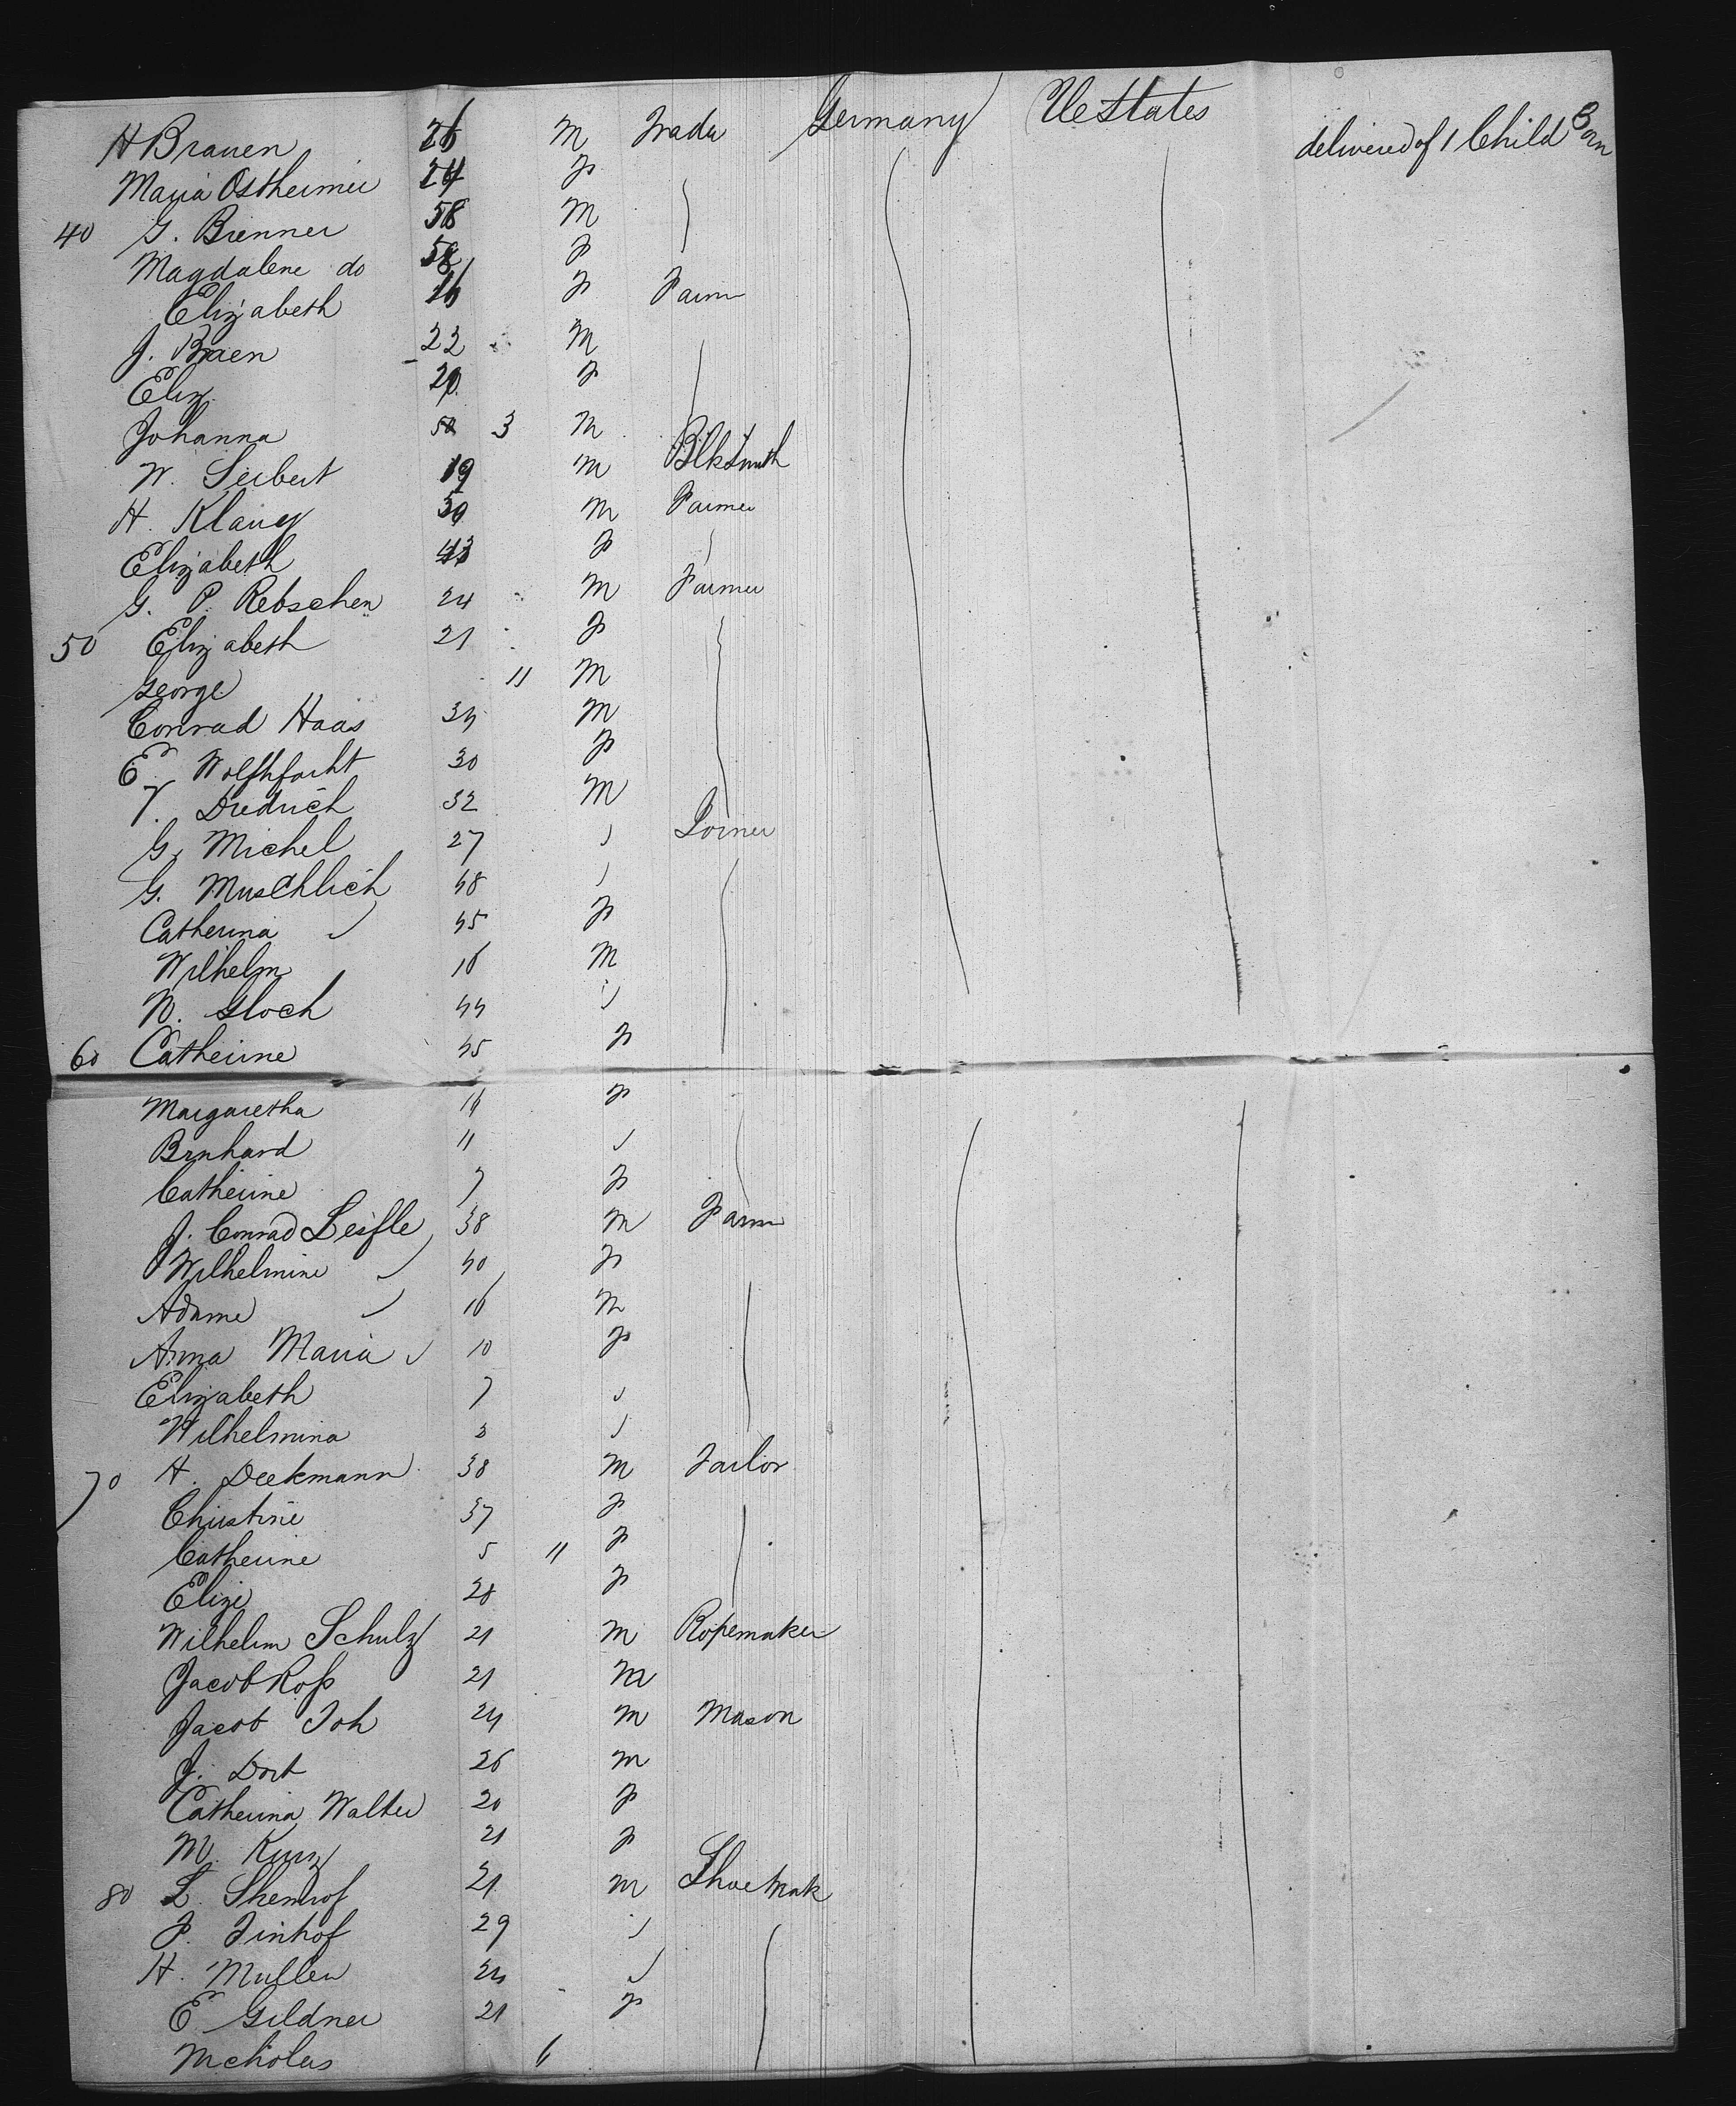 H Brauen 26 M Trader Germany U States delivered of 1 Child Son
Maria Ostheimer 24 F
40 G. Brenner 58 M
Magdalene do 58 F
Elizabeth 16 F Farm
J. Braen 22 M
Eliz. 20 F
Johanna 3 M
W. Seibert 19 M Blksmith
H. Klaug 50 M Farmer
Elizabeth 43 F
G. P. Rebschen 24 M Farmer
50 Elizabeth 21 F
George 11 M
Conrad Haas 34 M
E. 30 F
V. Diedrich 32 M
G. Michel 27 " Joiner
G. Muschlich 48 "
Catherina " 45 F
Wilhelm 16 M
N. Gloch 44 "
60 Catherine 45 F
Margaretha 14 F
Brnhard 11 "
Catherine 7 F
J. Conrad Leifle 38 M Farm
Wilhelmine " 40 F
Adame " 16 M
Anna Maria " 10 F
Elizabeth 7 "
Wilhelmina 3 "
70 H. Deekmann 38 M Tailor
Christine 37 F
Catherine 5 11 F
Elize 28 F
Wilhelm Schulz 21 M Ropemaker
Jacob Roſs 21 M
Jacob Joh 24 M Mason
J. Dort 26 M
Catherina Walter 20 F
M. Kurz 21 F
80 L. 21 M Shoemak
F. Finhof 29 "
H. Muller 24 "
E Gildner 21 F
Nicholas 6